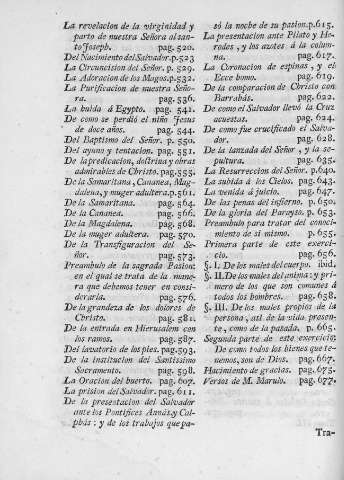 La revelacion de la virginidad y
parto de nuestra Señora al san-
to Joseph. pag. 520.
Del Nacimiento del Salvador. p.523
La Circuncision del Señor. p. 529.
La Adoracion de los Magos. p.532.
La Purificacion de nuestra Seño-
ra. pag. 536.
La huida á Egypto. pag. 541.
De como se perdió el niño Jesus
de doce años. pag. 544.
Del Baptismo del Señor. p. 550.
Del ayuno y tentacion. pag. 551.
De la predicacion, doctrina y obras
admirables de Christo. pag. 555.
De la Samaritana, Cananea, Mag-
dalena, y muger adultera. p.561.
De la Samaritana. pag. 564.
De la Cananea. pag. 566.
De la Magdalena. pag. 568.
De la muger adultera. pag. 570.
De la Transfiguracion del Se-
ñor. pag. 573.
Preambulo de la sagrada Pasion:
en el qual se trata de la mane-
ra que debemos tener en consi-
derarla. pag. 576.
De la grandeza de los dolores de
Christo. pag. 581.
De la entrada en Hierusalem con
los ramos. pag. 587.
Del lavatorio de los pies. pag. 593.
De la institucion del Santissimo
Sacramento. pag. 598.
La Oracion del huerto. pag. 607.
La prision del Salvador. pag. 611.
De la presentacion del Salvador
ante los Pontifices Annás, y Cai-
phás: y de los trabajos que pa-
só la noche de su pasion. p.615.
La presentacion ante Pilato y He-
rodes, y los azotes á la colum-
na. pag. 617.
La Coronacion de espinas, y el
Ecce homo. pag. 619.
De la comparacion de Christo con
Barrabás. pag. 622.
De como el Salvador llevó la Cruz
acuestas. pag. 624.
De como fue crucificado el Salva-
dor. pag. 628.
De la lanzada del Señor, y la se-
pultura. pag. 635.
La Resurreccion del Señor. p.640.
La subida á los Cielos. pag. 643.
La venida á juicio. pag. 647.
De las penas del infierno. p. 650.
De la gloria del Parayso. p. 653.
Preambulo para tratar del conoci-
miento de sí mismo. p. 655.
Primera parte de este exerci-
cio. pag. 656.
§. I. De los males del cuerpo. ibid.
§. II. De los males del anima: y pri-
mero de los que son comunes á
todos los hombres. pag. 658.
§. III. De los males propios de la
persona, asi de la vida presen-
te, como de la pasada. p. 665.
Segunda parte de este exercicio:
De como todos los bienes que te-
nemos, son de Dios. pag. 667.
Hacimiento de gracias. pag. 675.
Versos de M. Marulo. pag. 677.
Tra-